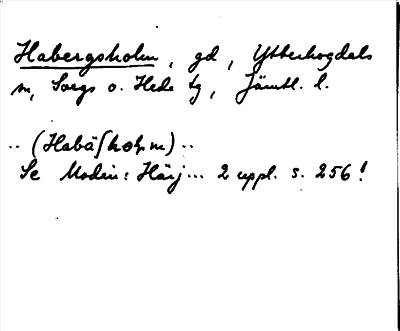 Habergsholm, gd, Ytterhogdals
sn, Svegs o. Hede tg, Jämtl. l.
.. (Habäſholm) ..
Se Modin: Härj... 2 uppl. s. 256!